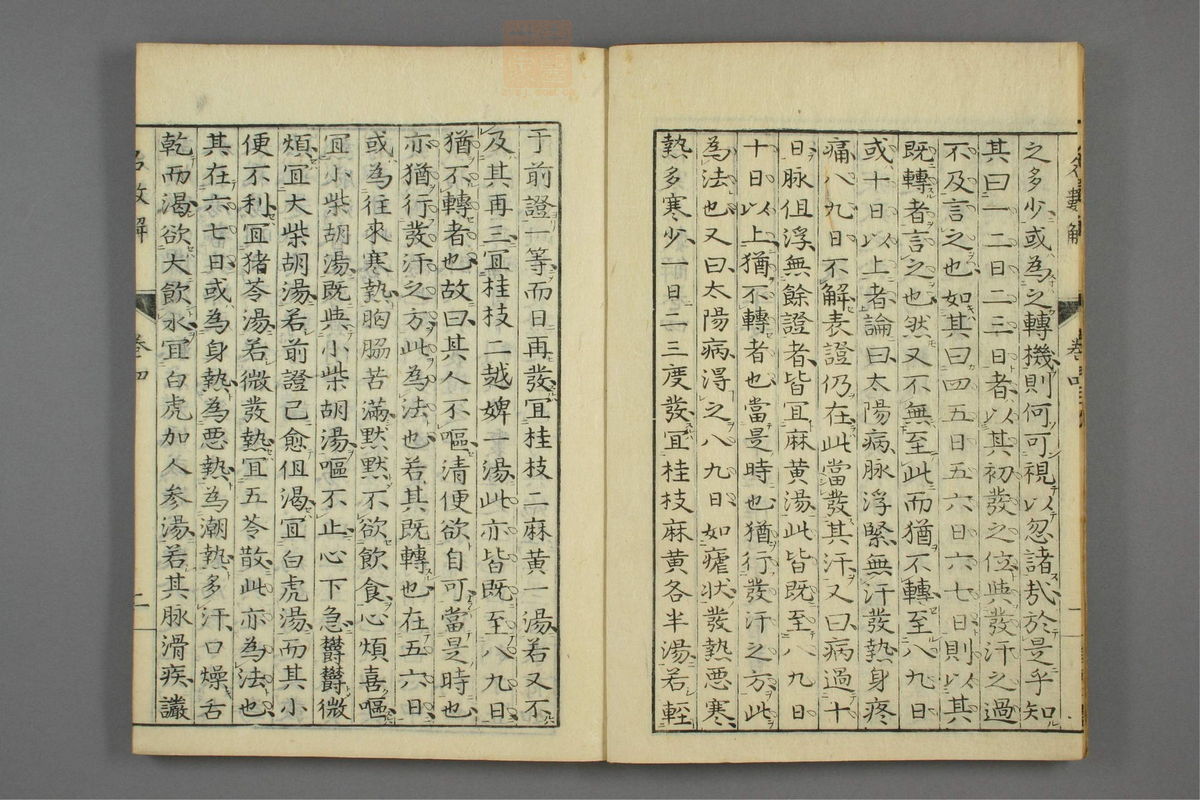 之多少或為之轉機則何可視以忽諸哉於是乎知
其曰一二日二三日者以其初發之位與發汗之過
不及言之也如其曰四五日五六日六七日則以其
既轉者言之也然又不無至此而猶不轉至八九日
或十日以上者論曰太陽病脉浮緊無汗發熱身疼
痛八九日不解表證仍在此當發其汗又曰病過十
日脉但浮無餘證者皆冝麻黄湯此皆既至八九日
十日以上猶不轉者也當是時也猶行發汗之方此
為法也又曰太陽病得之八九日如瘧狀發熱悪寒
熱多寒少一日二三度發冝桂枝麻黄各半湯若輕
于前證一等而日再發冝桂枝二麻黄一湯若又不
及其再三冝桂枝二越婢一湯此亦皆既至八九日
猶不轉者也故曰其人不嘔清便欲自可當是時也
亦猶行發汗之方此為法也若其既轉也在五六日
或為往来寒熱胸脇苦滿默默不欲飲食心煩喜嘔
冝小柴胡湯既與小柴胡湯嘔不止心下急欝欝微
煩冝大柴胡湯若前證已愈但渴冝白虎湯而其小
便不利冝猪苓湯若微發熱冝五苓散此亦為法也
其在六七日或為身熱為悪熱為潮熱多汗口燥舌
乾而渴欲大飲水冝白虎加人参湯若其脉滑疾讝
名數解
卷四
二